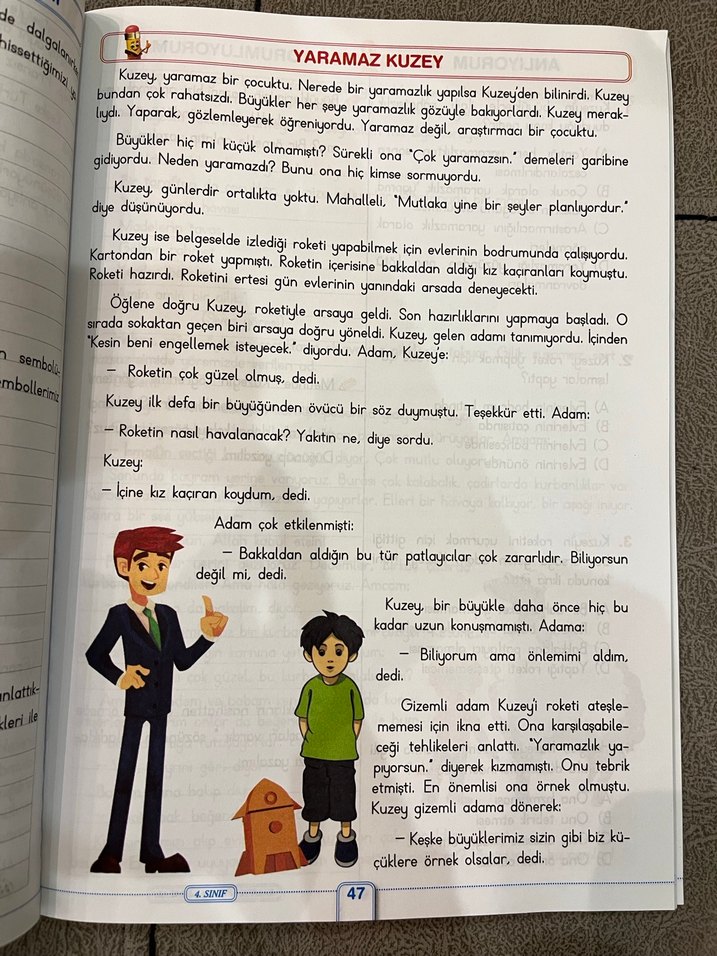 de dalgalanırken
hissettiğimizi
YARAMAZ KUZEY
Kuzey, yaramaz bir çocuktu. Nerede bir yaramazlık yapılsa Kuzey'den bilinirdi. Kuzey
bundan çok rahatsızdı. Büyükler her şeye yaramazlık gözüyle bakıyorlardı. Kuzey merak-
lıydı. Yaparak, gözlemleyerek öğreniyordu. Yaramaz değil, araştırmacı bir çocuktu.
Büyükler hiç mi küçük olmamıştı? Sürekli ona "Çok yaramazsın." demeleri garibine
gidiyordu. Neden yaramazdı? Bunu ona hiç kimse sormuyordu.
Kuzey, günlerdir ortalıkta yoktu. Mahalleli, "Mutlaka yine bir şeyler planlıyordur."
diye düşünüyordu.
Kuzey ise belgeselde izlediği roketi yapabilmek için evlerinin bodrumunda çalışıyordu.
Kartondan bir roket yapmıştı. Roketin içerisine bakkaldan aldığı kız kaçıranları koymuştu.
Roketi hazırdı. Roketini ertesi gün evlerinin yanındaki arsada deneyecekti.
Öğlene doğru Kuzey, roketiyle arsaya geldi. Son hazırlıklarını yapmaya başladı. O
sırada sokaktan geçen biri arsaya doğru yöneldi. Kuzey, gelen adamı tanımıyordu. İçinden
"Kesin beni engellemek isteyecek." diyordu. Adam, Kuzey'e:
– Roketin çok güzel olmuş, dedi.
Kuzey ilk defa bir büyüğünden övücü bir söz duymuştu. Teşekkür etti. Adam:
– Roketin nasıl havalanacak? Yakıtın ne, diye sordu.
Kuzey:
– İçine kız kaçıran koydum, dedi.
Adam çok etkilenmişti:
– Bakkaldan aldığın bu tür patlayıcılar çok zararlıdır. Biliyorsun
değil mi, dedi.
Kuzey, bir büyükle daha önce hiç bu
kadar uzun konuşmamıştı. Adama:
– Biliyorum ama önlemimi aldım,
dedi.
Gizemli adam Kuzey'i roketi ateşle-
memesi için ikna etti. Ona karşılaşabile-
ceği tehlikeleri anlattı. "Yaramazlık ya-
pıyorsun." diyerek kızmamıştı. Onu tebrik
etmişti. En önemlisi ona örnek olmuştu.
Kuzey gizemli adama dönerek:
– Keşke büyüklerimiz sizin gibi biz kü-
çüklere örnek olsalar, dedi.
4. SINIF
47
n sembolü-
embollerimiz
anlattık-
kleri ile